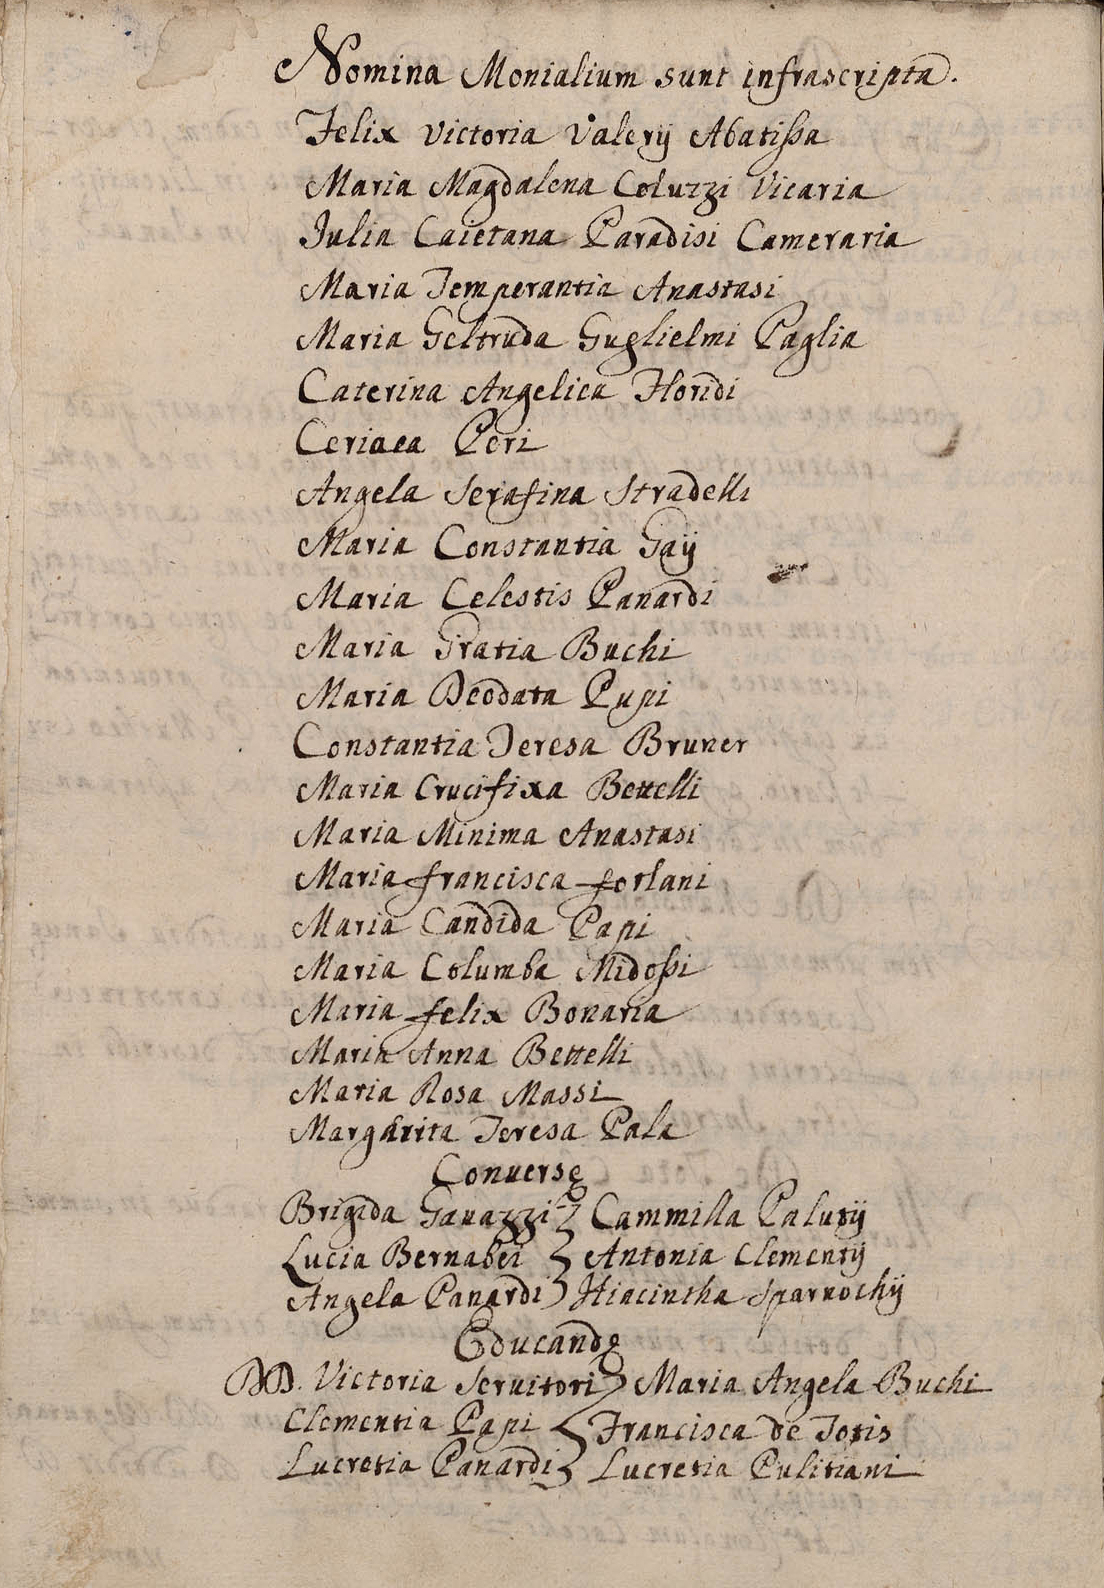 Nomina Monialium sunt infrascripta.
Felix Victoria Valerij Abatissa
Maria Magdalena Coluzzi Vicaria
Julia Caietana Paradisi Cameraria
Maria Temperantia Anastasi
Maria Geltruda Guglielmi Paglia
Caterina Angelica Floridi
Ceriaca Peri
Angela Serafina Stradelli
Maria Constantia Gaij
Maria Celestis Panardi
Maria Gratia Buchi
Maria Deodata Pupi
Constantia Teresa Bruner
Maria Crucifixa Bettelli
Maria Minima Anastasi
Maria Francisca Forlani
Maria Candida Papi
Maria Columba Midossi
Maria Felix Bonaria
Maria Anna Bettelli
Maria Rosa Massi
Margarita Teresa Pala
Conversę
Brigida Gauazzi Cammilla Palutij
Lucia Bernabei Antonia Clementij
Angela Panardi Hiacintha Sparnochij
Educandę
DD. Victoria Seruitori Maria Angela Buchi
Clementia Papi Francisca de Totis
Lucretia Panardi Lucretia Pulitiani